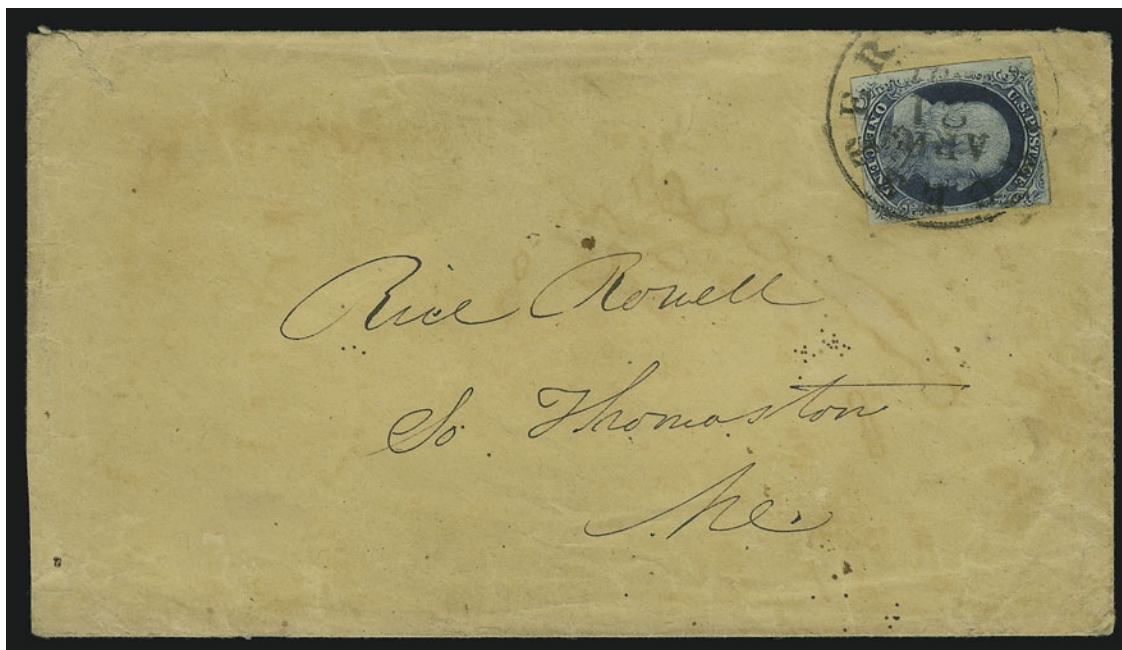 U.S. POSTAGE
ONE CENT
Rice Rowell
So. Thomaston
Me.